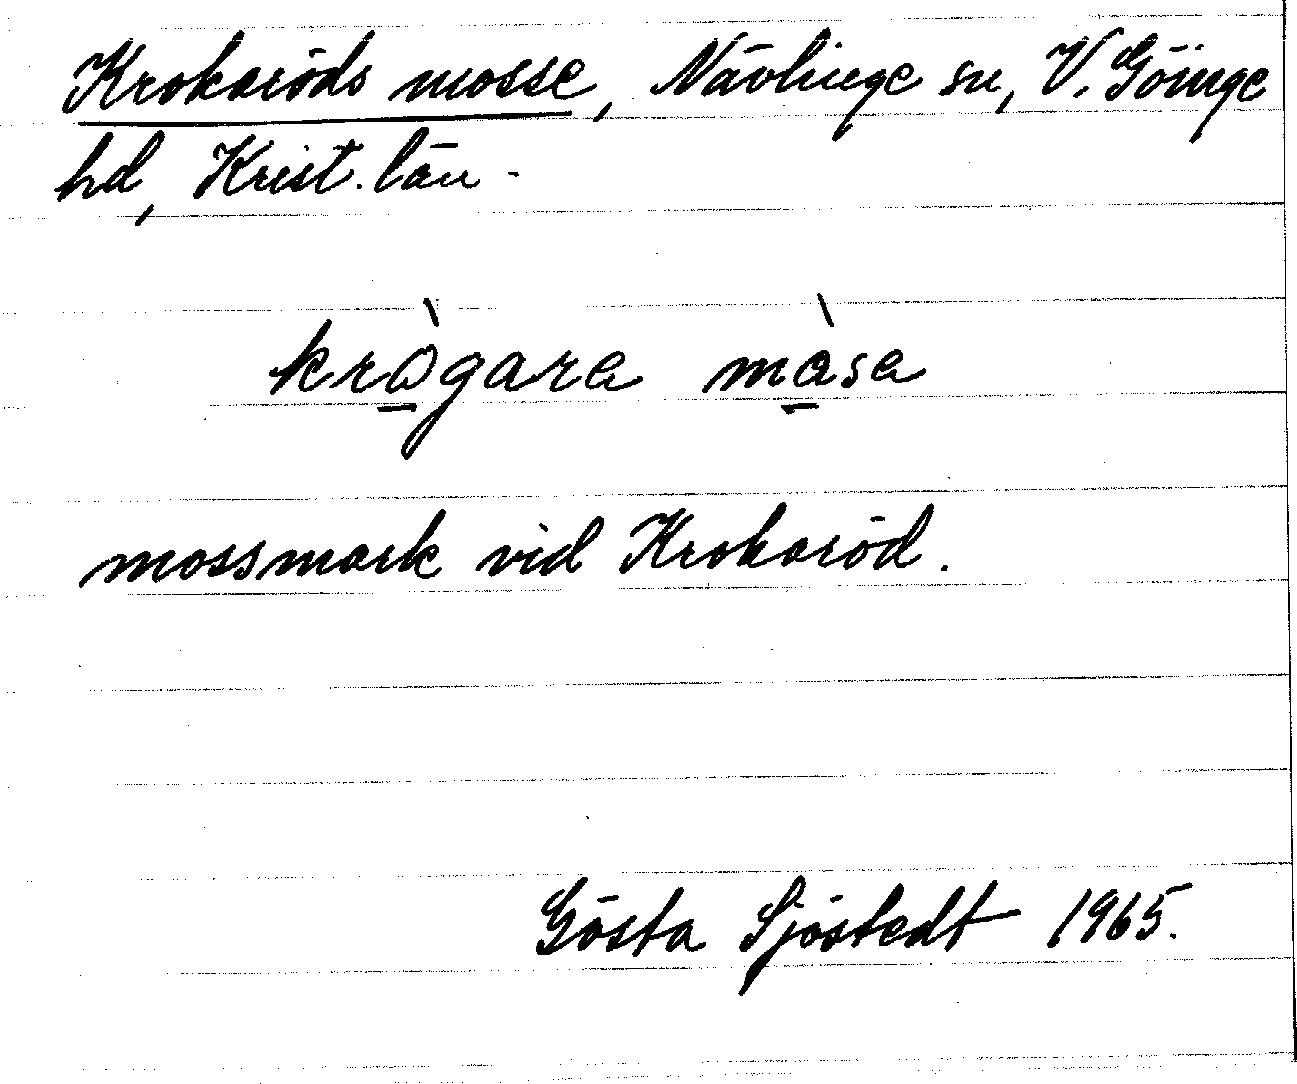 Krokaröds mosse, Nävlinge sn, V. Göinge
hd, Krist. län.
kràgara màsa
mossmark vid Krokaröd.
Gösta Sjöstedt 1965.